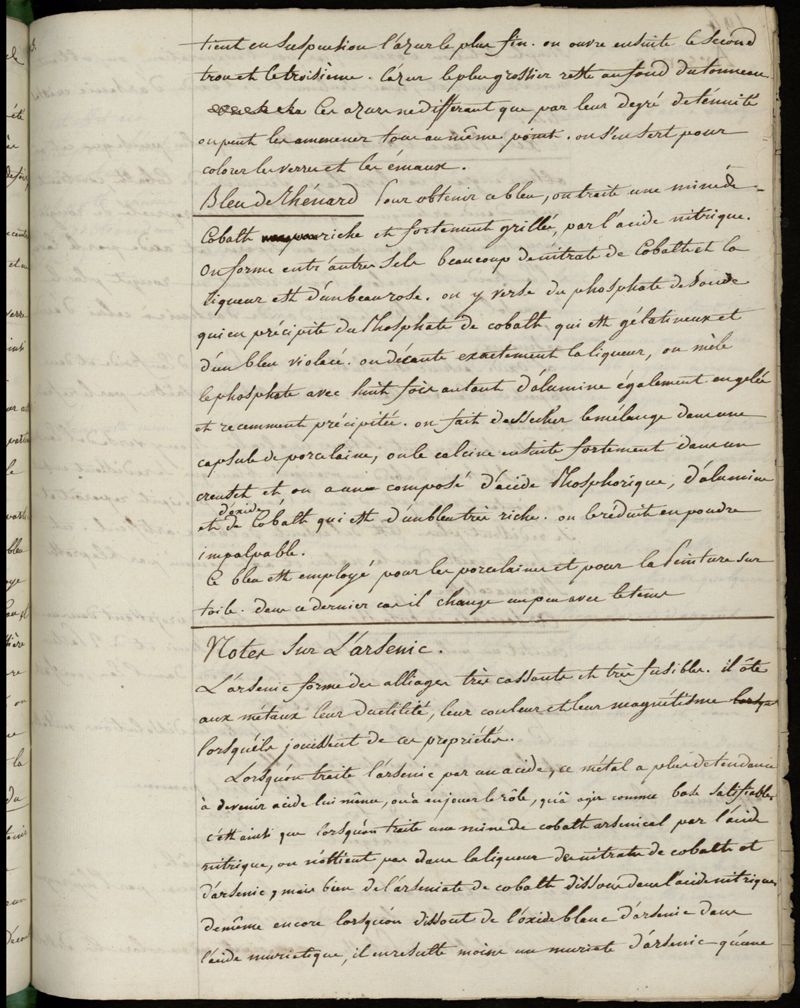 tient en suspension l'azur le plus fin. on ouvre ensuite le second
trou et le troisième. l'azur le plus grossier reste au fond du tonneau
les azurs ne differant que par leur degré de ténuité
on peut les ammener tous au même point. on s'en sert pour
colorer les verres et les émaux.
Bleu de Thénard Pour obtenir ce bleu, on traite une mine de
Cobalt riche et fortement grillée, par l'acide nitrique.
On forme entr'autres sels beaucoup de nitrate de Cobalt et la
liqueur est d'un beau rose. on y verse du phosphate de soude
qui en précipite du Phosphate de cobalt qui est gélatineux et
d'un bleu violacé. on décante exactement la liqueur, on mêle
le phosphate avec huit fois autant d'alumine également en gelée
et recemment précipitée. on fait dessecher le mélange dans une
capsule de porcelaine, on le calcine ensuite fortement dans un
creuset et on a un composé d'acide Phosphorique, d'alumine
d'oxide
et de Cobalt qui est d'un bleu très riche. on le réduit en poudre
impalpable.
Ce bleu est employé pour les porcelaines et pour la Peinture sur
toile. dans ce dernier cas il change un peu avec le tems
Notes sur L'arsenic.
L'arsenic forme des alliages très cassants et très fusibles. il ôte
aux métaux leur ductilité, leur couleur et leur magnétisme lorsq
lorsqu'ils jouissent de ces propriétés.
Lorsqu'on traite l'arsenic par un acide, ce métal a plus de tendance
à devenir acide lui même, ou à en jouer le rôle, qu'à agir comme base salifiable
c'est ainsi que lorsqu'on traite une mine de cobalt arsenical par l'acide
nitrique, on n'obtient pas dans la liqueur des nitrates de cobalt et
d'arsenic, mais bien de l'arseniate de cobalt dissous dans l'acide nitrique,
de même encore lorsqu'on dissout de l'oxide blanc d'arsenic dans
l'acide muriatique, il en resulte moins un muriate d'arsenic qu'une